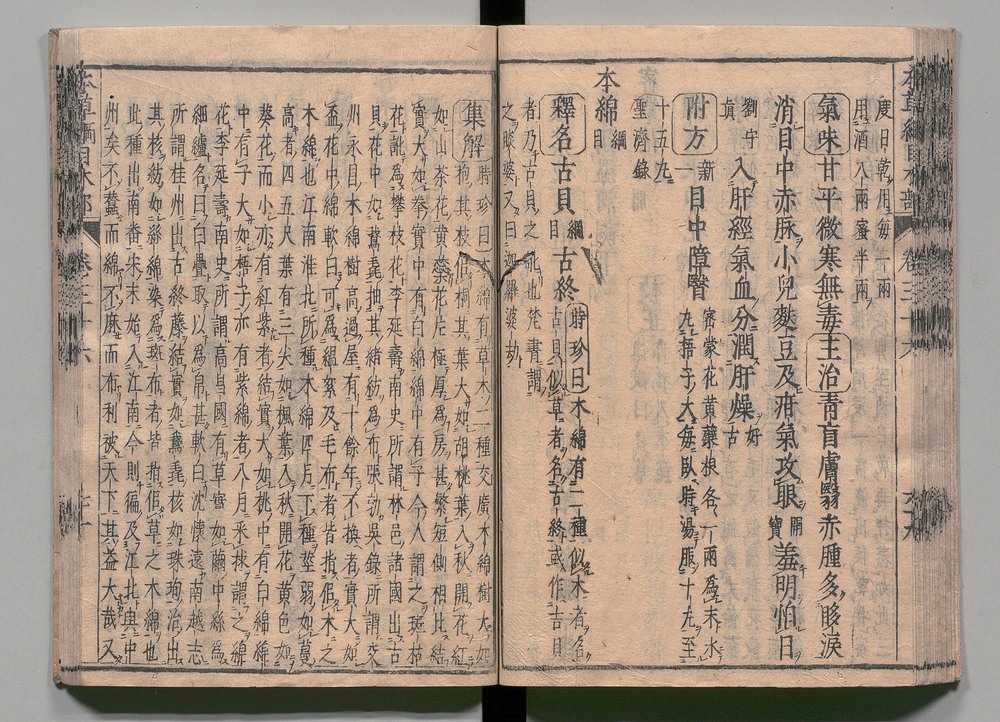 度日乾用每一兩
用酒八兩蜜半兩
氣味甘平微寒無毒主治青盲膚翳赤腫多眵淚
消目中赤脉小兒麩豆及疳氣攻眼開寶羞明怕日
劉守真入肝經氣血分潤肝燥好古
附方新一目中障翳密蒙花黃蘗根各一兩爲末水
丸梧子大每臥時湯服十九至
十五丸
聖濟錄
本綿綱目
釋名古貝綱目古終時珍曰木綿有二種似木者名
古貝似草者名古終或作吉貝
者乃古貝之訛也梵書謂
之睒婆又曰迦羅婆劫
集解時珍曰木綿有草木二種交廣木綿樹大如
抱其枝似桐其葉大如胡桃葉入秋開花紅
如山茶花黃蕊花片極厚爲房甚繁短側相比結
實大如拳實中有白綿綿中有子今人謂之斑枝
花訛爲攀枝花李延壽南史所謂林邑諸國出古
貝花中如鵞毳抽其緒紡爲布張勃吳錄所謂交
州永昌木綿樹高過屋有十餘年不換者實大如
盃花中綿軟白可爲縕絮及毛布者皆指似木之
木綿也江南淮北所種木綿四月下種莖弱如蔓
高者四五尺葉有三尖如楓葉入秋開花黃色如
葵花而小亦有紅紫者結實大如桃中有白綿綿
中有子大如梧子亦有紫綿者八月采𣑱謂之綿
花李延壽南史所謂高昌國有草實如繭中絲爲
細纑名曰白疊取以爲帛甚軟白沈懷遠南越志
所謂桂州出古終藤結實如鵞毳核如珠珣治出
其核紡如絲綿染爲斑布者皆指似草之木綿也
此種出南番宋末始入江南今則徧及江北與中
州矣不蠶而綿不麻而布利被天下其益大哉又